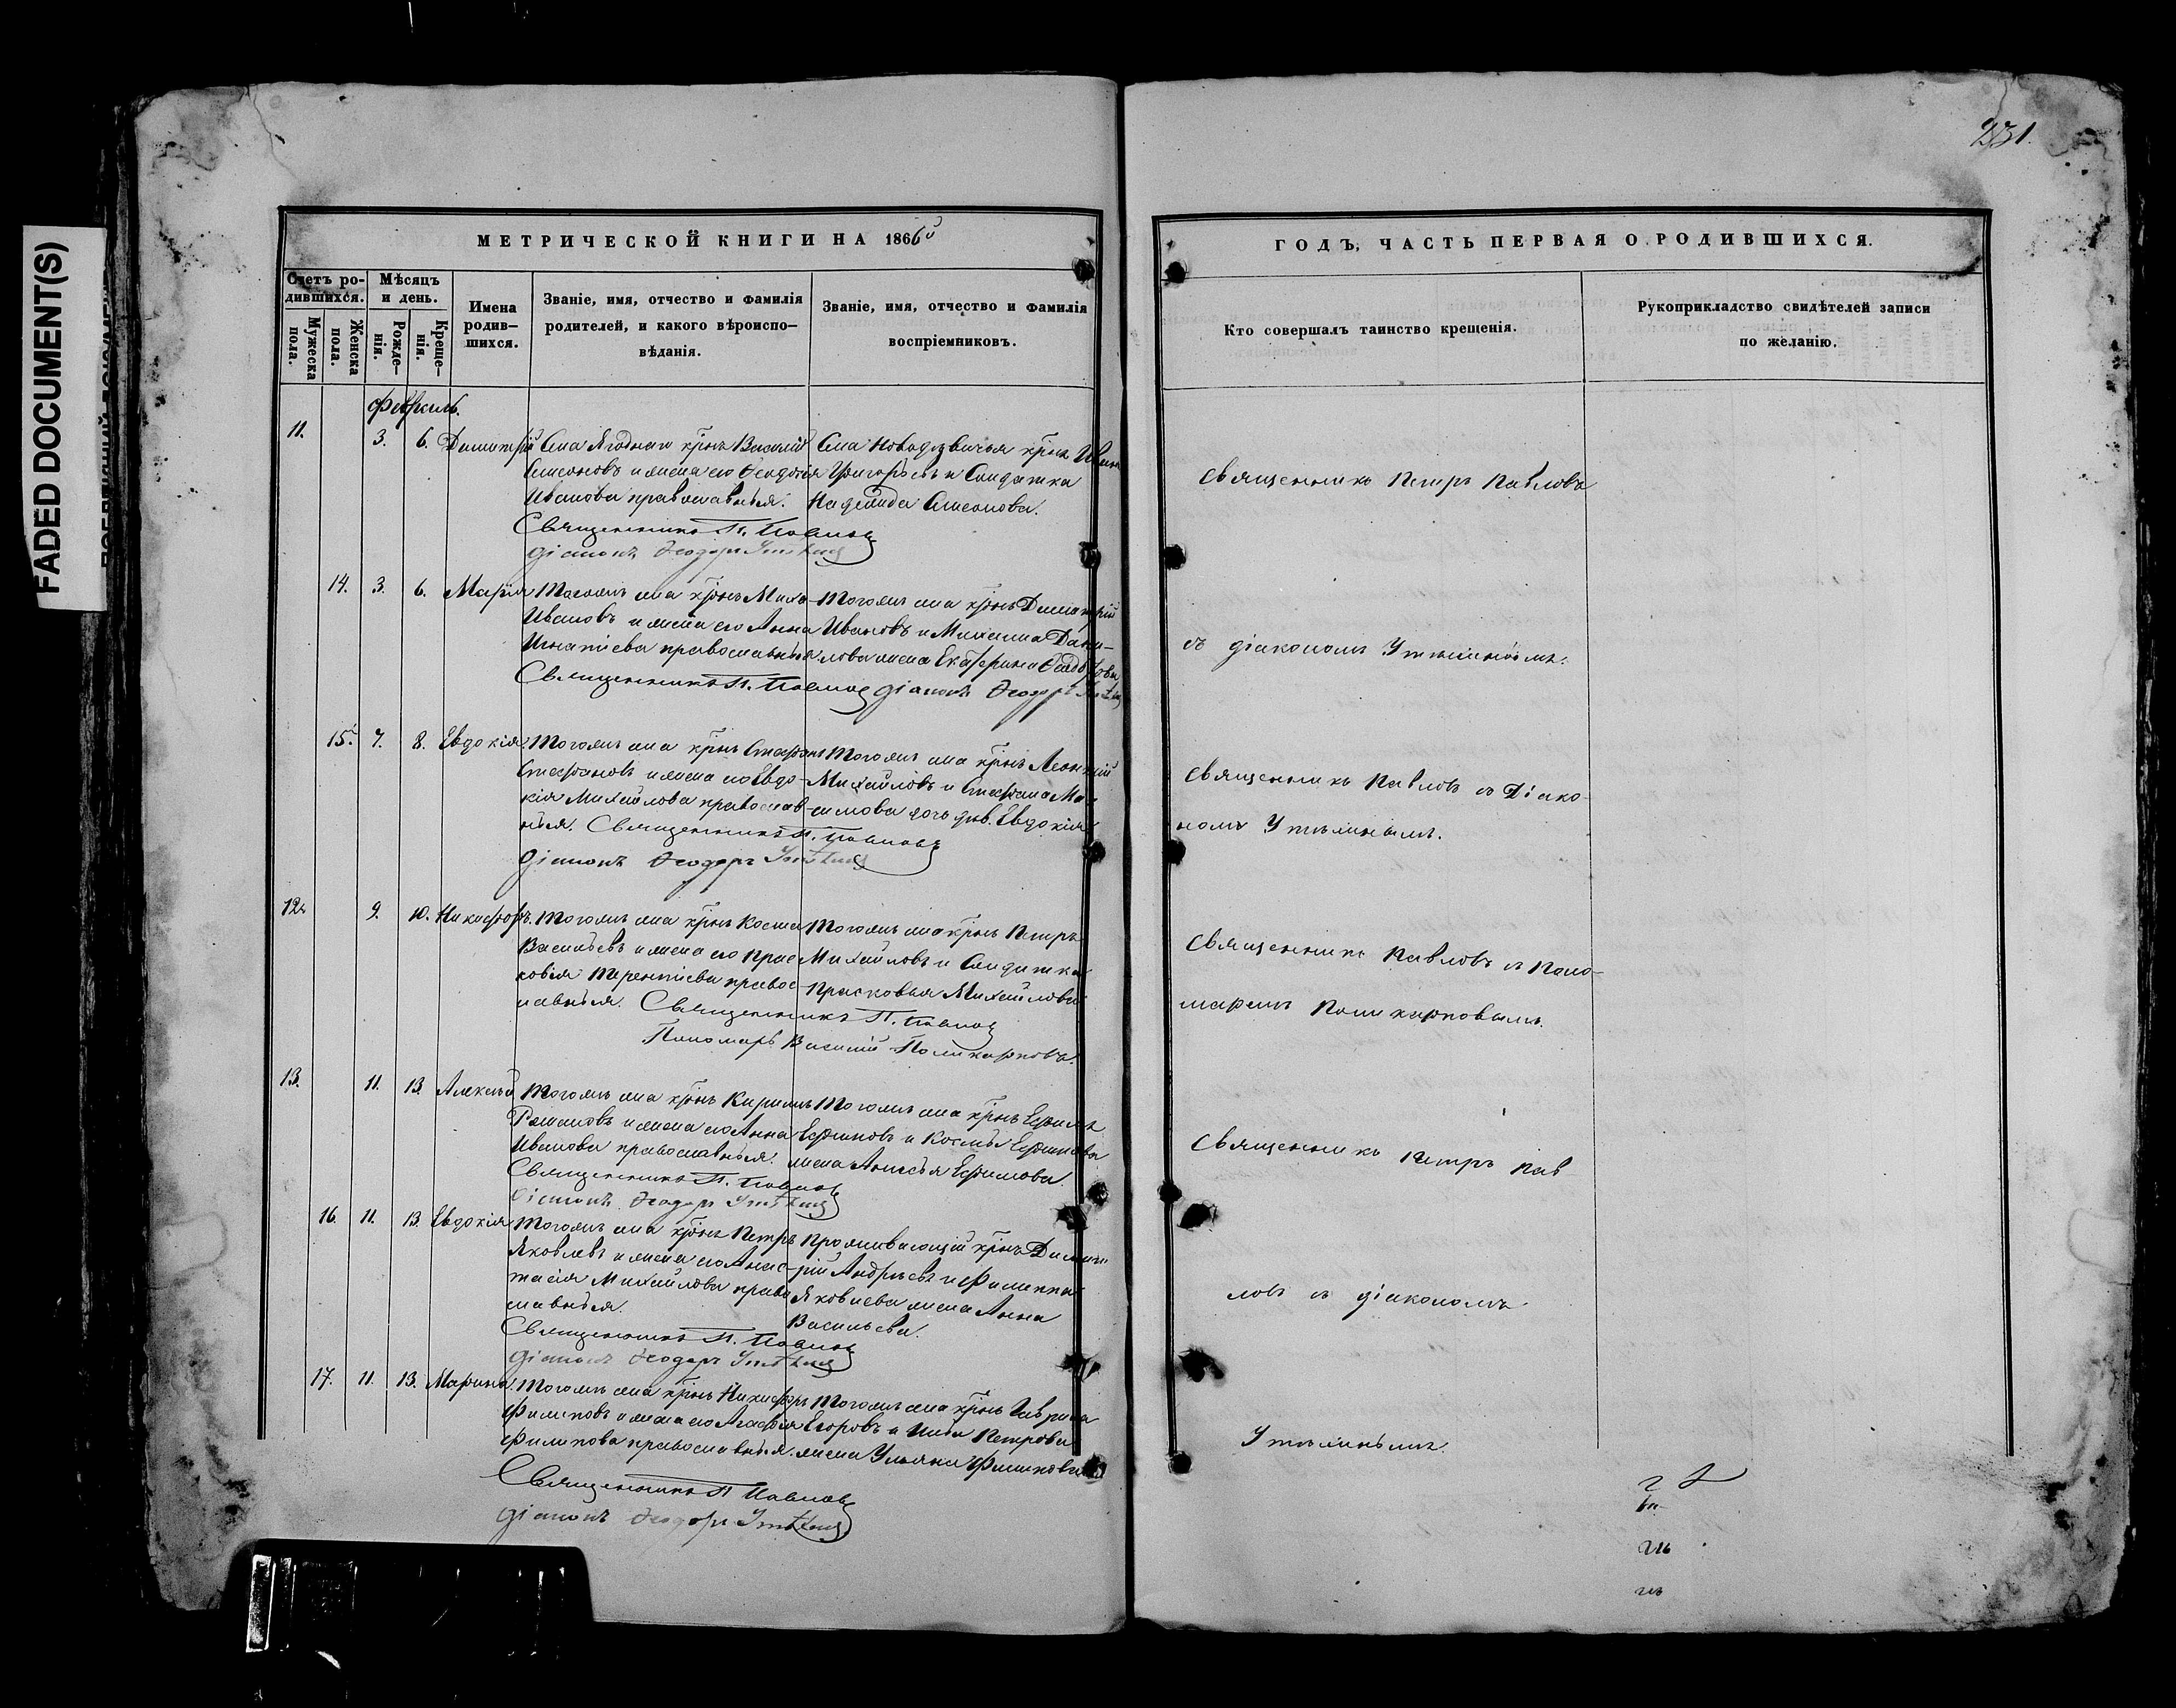 FADED DOCUMENT(S)
231.
МЕТРИЧЕСКОЙ КНИГИ НА 1866й
ГОДЪ, ЧАСТЬ ПЕРВАЯ О РОДИВШИХСЯ.
Счетъ ро-
дившихся.
Мужеска пола.
Женска пола.
Мѣсяцъ
и день.
Рожде-
нія.
Креще-
нія.
Имена
родив-
шихся.
Званіе, имя, отчество и фамилія
родителей, и какого вѣроиспо-
вѣданія.
Званіе, имя, отчество и фамилія
воспріемниковъ.
Кто совершалъ таинство крещенія.
Рукоприкладство свидѣтелей записи
по желанію.
Февраль.
11. 3. 6. Димитрій
Села Ягоднаго крнъ Василій
Симеоновъ и жена его Феодосія
Иванова православныя.
Священникъ П. Павловъ
Діаконъ Ѳеодоръ
Села Новодѣвичья крнъ Иванъ
Григорьевъ и Солдатка
Надежда Симеонова.
Священникъ Петръ Павловъ
14. 3. 6. Марія
Тогожъ села крнъ
Ивановъ и жена его Анна
Игнатіева православныя
Священникъ П. Павловъ Діаконъ Ѳеодоръ
Тогожъ села крнъ Димитрій
Ивановъ и Михаила Дани-
лова жена Екатерина
съ діакономъ Утѣхинымъ.
15. 7. 8. Евдокія
Тогожъ села крнъ Стефанъ
Стефановъ и жена его Евдо-
кія Михайлова православ-
ныя. Священникъ П. Павловъ
Діаконъ Ѳеодоръ
Тогожъ села крнъ Леонтій
Михайловъ и Стефана Ма-
симова дочь дѣв. Евдокія
Священникъ Павловъ съ Діако-
номъ Утѣхинымъ.
12. 9. 10. Никифоръ.
Тогожъ села крнъ Косма
Васильевъ и жена его Прас
ковія Терентіева правос-
лавныя. Священникъ П. Павловъ
Пономарь Василій Поликарповъ.
Тогожъ села крнъ Петръ
Михайловъ и Солдатка
Прасковья Михайлова
Священникъ Павловъ съ Поно-
маремъ Поликарповымъ.
13. 11. 13 Алексѣй
Тогожъ села крнъ Кирилъ
Романовъ и жена его Анна
Иванова православныя.
Священникъ П. Павловъ
Діаконъ Ѳеодоръ
Тогожъ села крнъ Ефимъ
Ефимовъ и Космы Ефимова
жена Анисья Ефимова.
Священникъ Петръ Пав
16. 11. 13. Евдокія
Тогожъ села крнъ Петръ
Яковлевъ и жена его Анас-
тасія Михайлова право
славныя.
Священникъ П. Павловъ
Діаконъ Ѳеодоръ
Проживающій крнъ Димит
рій Андреевъ и Филиппа
Яковлева жена Анна
Васильева.
ловъ съ діакономъ
17. 11. 13. Марина.
Тогожъ села крнъ Никифоръ
Филиповъ и жена его Агафія
Филипова православныя.
Священникъ П Павловъ
Діаконъ Ѳеодоръ
Тогожъ села крнъ Гаврила
Егоровъ и Ильи Петрова
жена Ульяна Филипова
Утѣхинымъ.